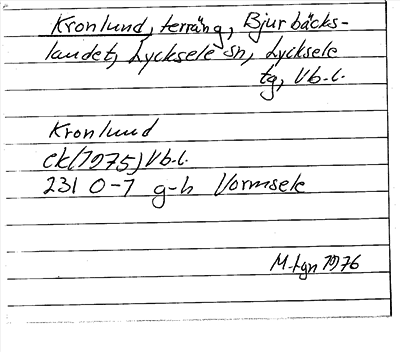 Kronlund, terräng, Bjurbäcks-
landet, Lycksele sn, Lycksele
tg, Vb.l.
Kronlund
ek(1975) Vb.l.
23I 0-1 g-h Vormsele
M-tgn 1976